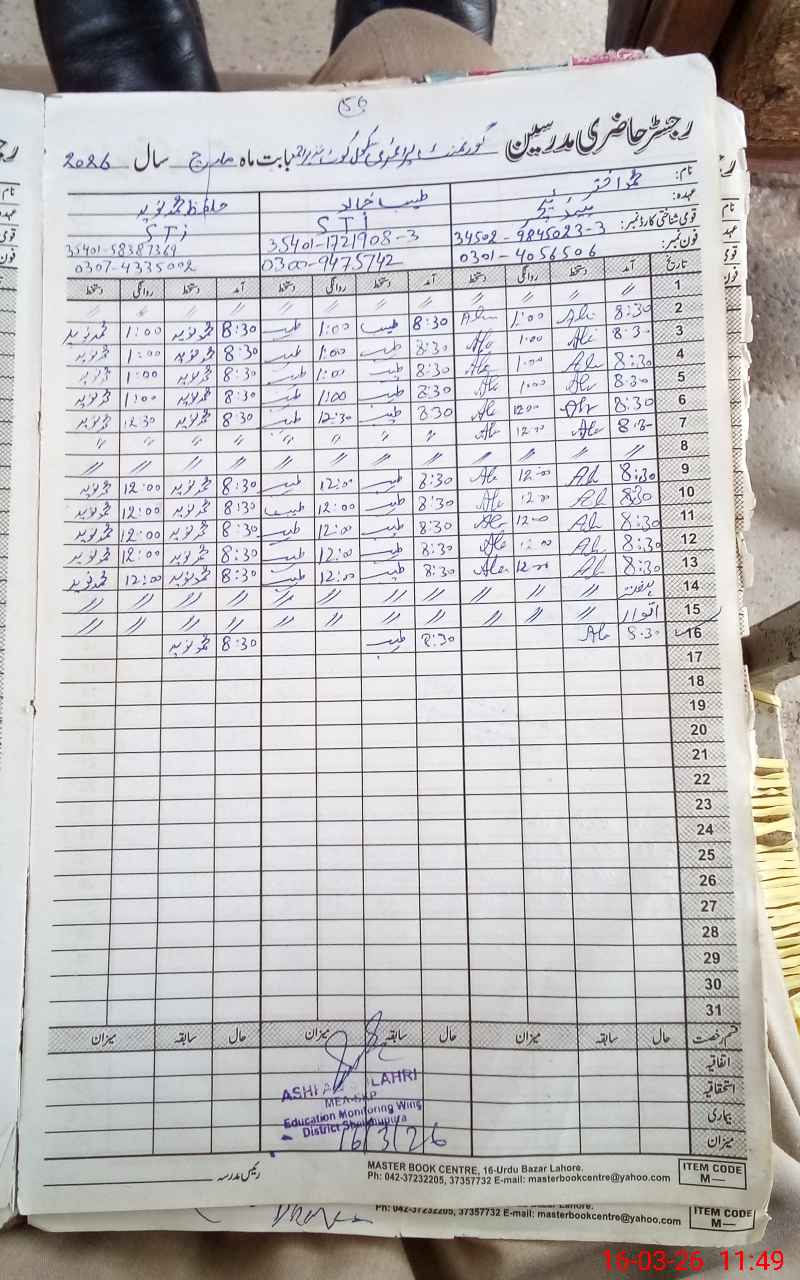 56
رجسٹر حاضری مدرسین گورنمنٹ پرائمری سکول کوٹ بابت ماہ مارچ سال 2026
نام: محمد اختر طیب خالد حافظ محمد نوید
عہدہ: STi STi
قومی شناختی کارڈ نمبر: 34502-9845023-3 35401-1721908-3 35401-58387369
فون نمبر: 0301-4056506 0300-9475742 0307-4335002
تاریخ آمد دستخط روانگی دستخط آمد دستخط روانگی دستخط آمد دستخط روانگی دستخط
1 〃 〃 〃 〃 〃 〃 〃 〃 〃 〃 〃 〃
2 8:30 Ali 1:00 Ali 8:30 طیب 1:00 طیب 8:30 محمد نوید 1:00 محمد نوید
3 8:30 Ali 1:00 Ali 8:30 طیب 1:00 طیب 8:30 محمد نوید 1:00 محمد نوید
4 8:30 Ali 1:00 Ali 8:30 طیب 1:00 طیب 8:30 محمد نوید 1:00 محمد نوید
5 8:30 Ali 1:00 Ali 8:30 طیب 1:00 طیب 8:30 محمد نوید 1:00 محمد نوید
6 8:30 Ali 12:00 Ali 8:30 طیب 12:30 طیب 8:30 محمد نوید 12:30 محمد نوید
7 8:30 Ali 12:00 Ali 〃 〃 〃 〃 〃 〃 〃 〃
8 〃 〃 〃 〃 〃 〃 〃 〃 〃 〃 〃 〃
9 8:30 Ali 12:00 Ali 8:30 طیب 12:00 طیب 8:30 محمد نوید 12:00 محمد نوید
10 8:30 Ali 12:00 Ali 8:30 طیب 12:00 طیب 8:30 محمد نوید 12:00 محمد نوید
11 8:30 Ali 12:00 Ali 8:30 طیب 12:00 طیب 8:30 محمد نوید 12:00 محمد نوید
12 8:30 Ali 12:00 Ali 8:30 طیب 12:00 طیب 8:30 محمد نوید 12:00 محمد نوید
13 8:30 Ali 12:00 Ali 8:30 طیب 12:00 طیب 8:30 محمد نوید 12:00 محمد نوید
14 ہفتہ 〃 〃 〃 〃 〃 〃 〃 〃 〃 〃 〃
15 اتوار 〃 〃 〃 〃 〃 〃 〃 〃 〃 〃 〃
16 8:30 Ali 8:30 طیب 8:30 محمد نوید
17
18
19
20
21
22
23
24
25
26
27
28
29
30
31
قسم رخصت حال سابقہ میزان حال سابقہ میزان حال سابقہ میزان
اتفاقیہ
استحقاقیہ
بیماری
میزان
LAHRI
MEA-SKP
Education Monitoring Wing
District Sheikhupura
16/3/26
رئیس مدرسہ
MASTER BOOK CENTRE, 16-Urdu Bazar Lahore.
Ph: 042-37232205, 37357732 E-mail: masterbookcentre@yahoo.com
ITEM CODE
M—
Ph: 042-37232205, 37357732 E-mail: masterbookcentre@yahoo.com
ITEM CODE
M—
16-03-26 11:49